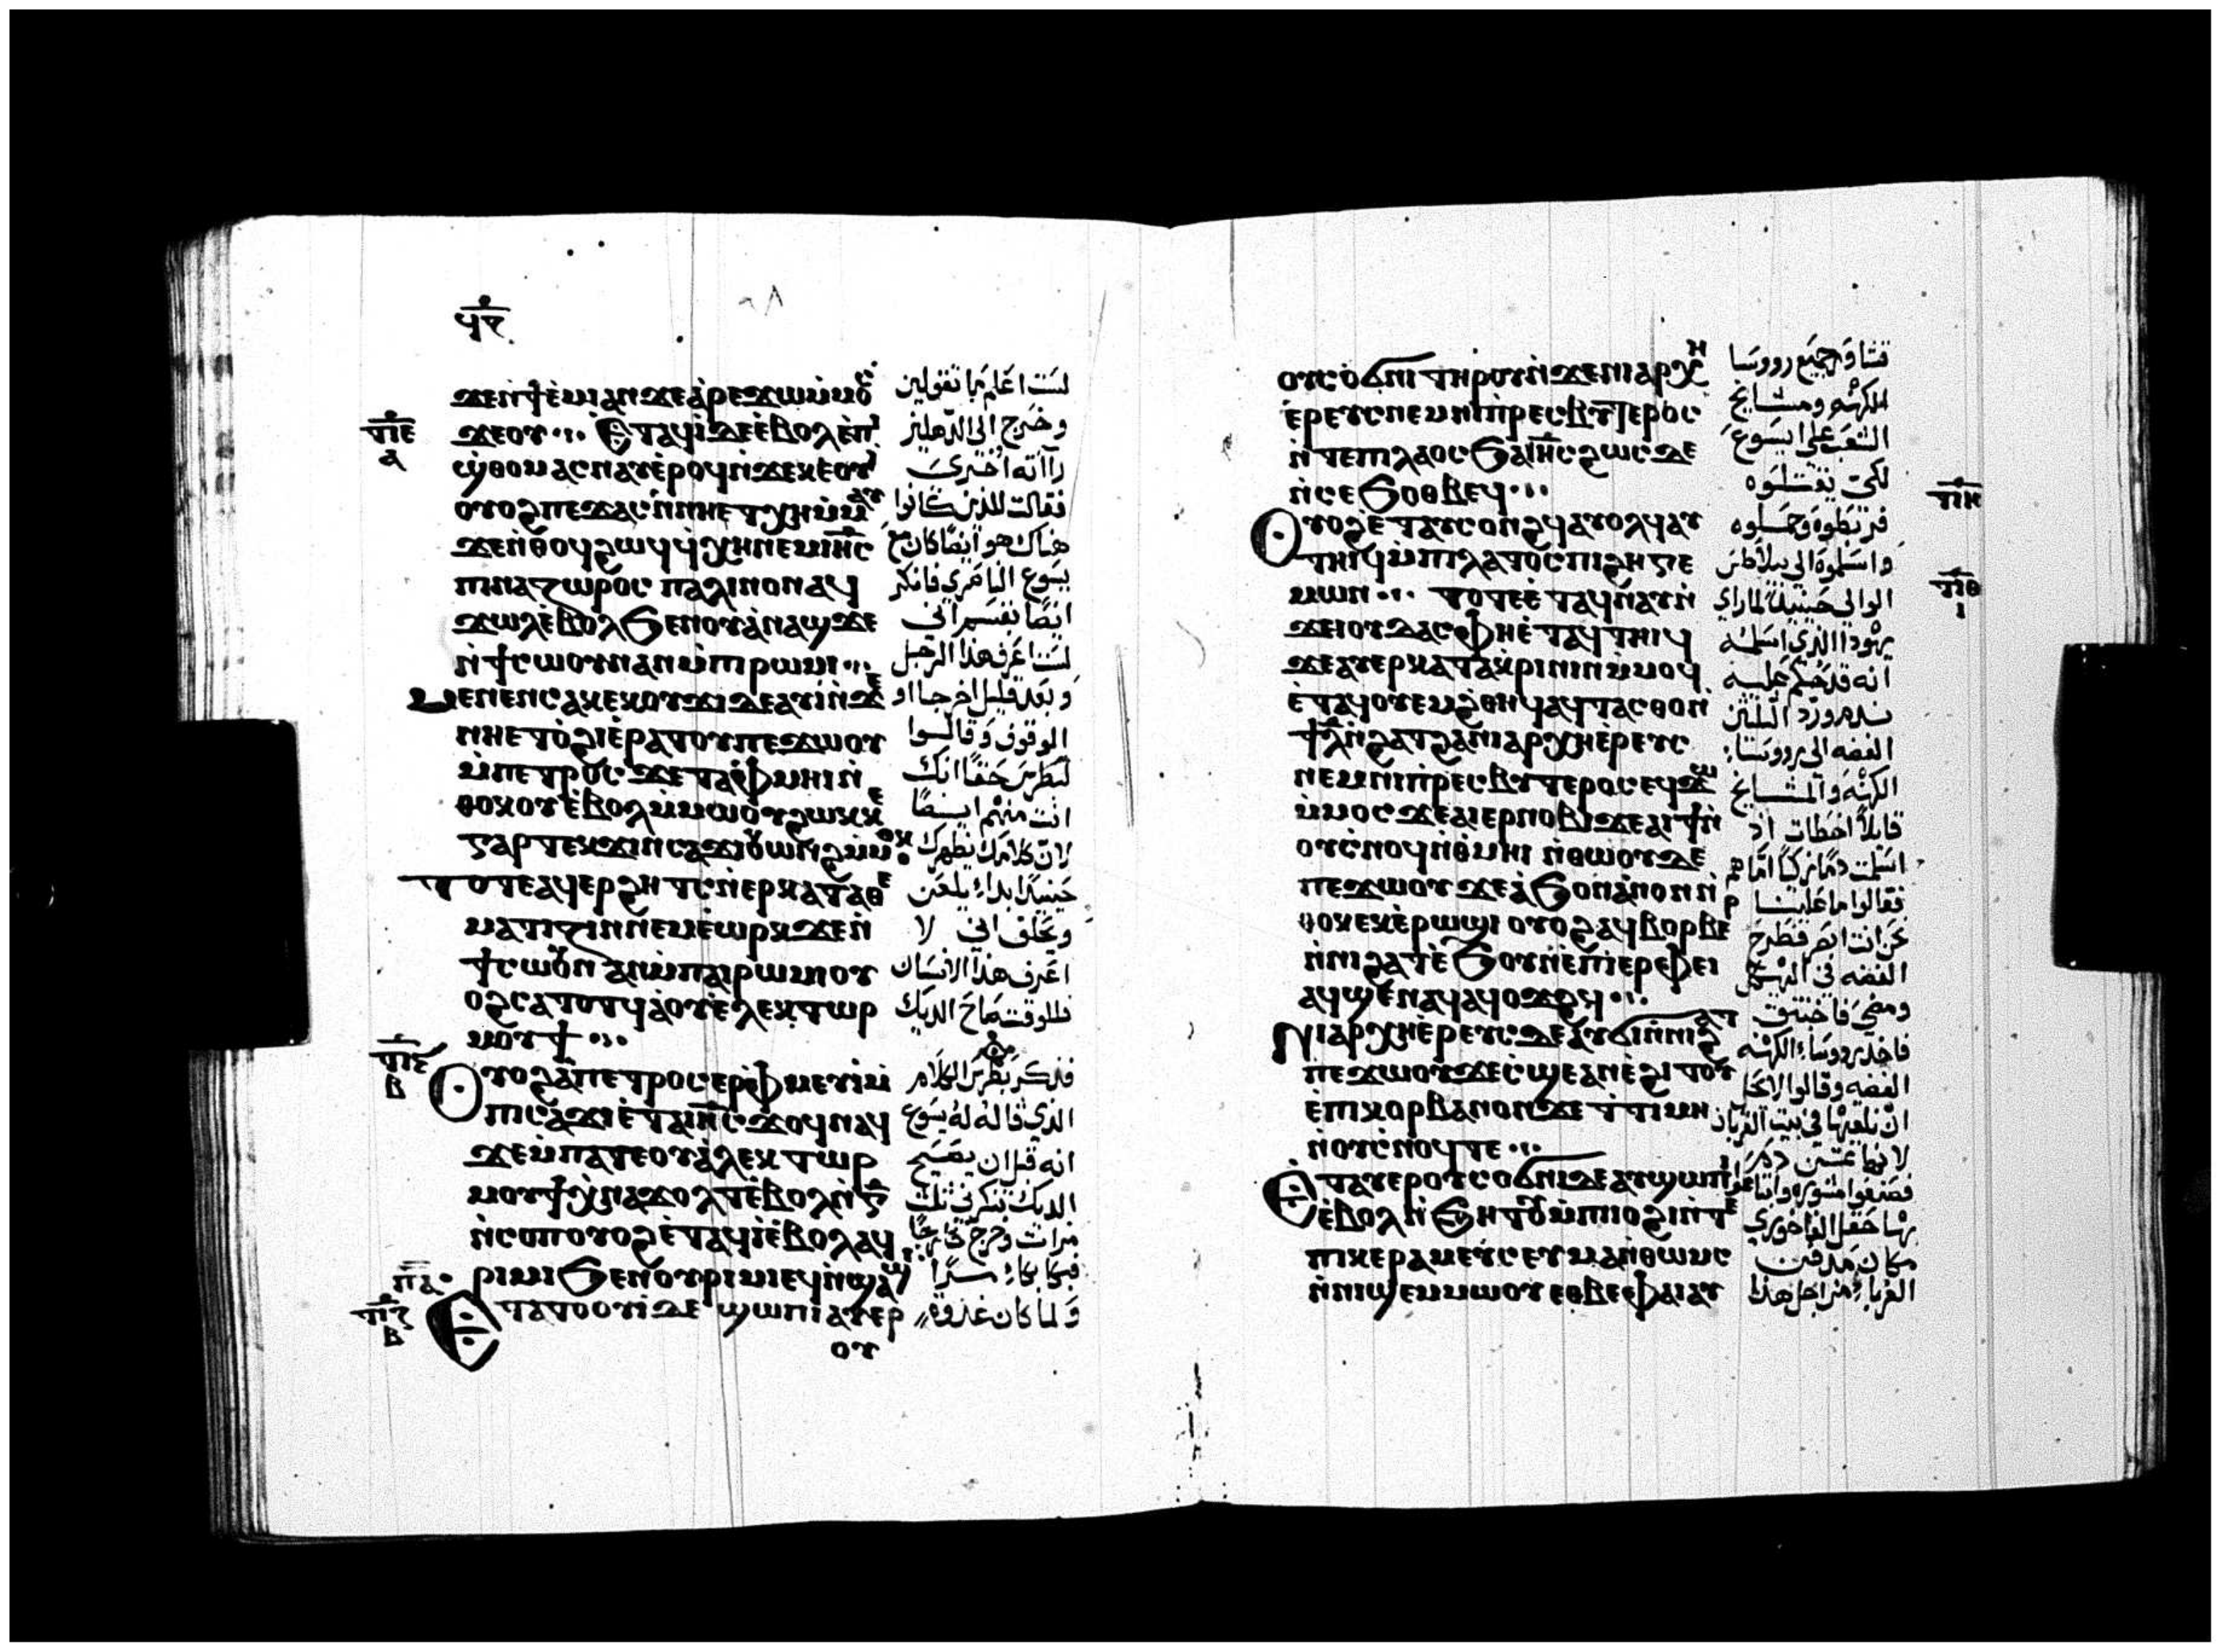 ϥⲋ
ϫⲉⲛϯⲉⲙⲓⲁⲛϫⲉⲁⲣⲉϫⲱⲙⲙⲟⲥ
ⲧⲓⲉ
ⲁ
ϫⲉⲟⲩ ⲉⲧⲁϥⲓⲇⲉⲉⲃⲟⲗⲉⲡⲓ
ⲑⲟⲙⲁⲥⲛⲁⲩⲉⲣⲟϥⲛϫⲉⲕⲉⲟⲩⲓ
ⲟⲩⲟϩⲡⲉϫⲁⲥⲛⲛⲏⲉⲧⲭⲏⲙⲙⲁⲩ
ϫⲉⲛⲑⲟϥϩⲱϥϥⲭⲏⲛⲉⲙⲓⲏⲥ
ⲡⲓⲛⲁⲍⲱⲣⲟⲥ ⲡⲁⲗⲓⲛⲟⲛⲁϥ
ϫⲱⲗⲉⲃⲟⲗϧⲉⲛⲟⲩⲁⲛⲁϣϫⲉ
ⲛϯⲥⲱⲟⲩⲛⲁⲛⲙⲡⲓⲣⲱⲙⲓ
ⲙⲉⲛⲉⲛⲥⲁⲕⲉⲕⲟⲩϫⲓⲇⲉⲁⲩⲓⲛϫⲉ
ⲛⲏⲉⲧⲟϩⲓⲉⲣⲁⲧⲟⲩⲡⲉϫⲱⲟⲩ
ⲙⲡⲉⲧⲣⲟⲥ ϫⲉⲧⲁⲫⲙⲏⲓⲛ
ⲑⲟⲕⲟⲩⲉⲃⲟⲗⲙⲙⲱⲟⲩϩⲱⲕⲕⲉ
ⲅⲁⲣⲧⲉⲕϫⲓⲛⲥⲁϫⲓⲟⲩⲱⲛϩⲙⲙⲟⲕ
ⲧⲟⲧⲉⲁϥⲉⲣϩⲏⲧⲥⲛⲉⲣⲕⲁⲧⲁⲑⲉ
ⲙⲁⲧⲓⲍⲓⲛⲛⲉⲙⲉⲱⲣⲕϫⲉⲛ
ϯⲥⲱⲟⲩⲛ ⲁⲛⲙⲡⲁⲓⲣⲱⲙⲓⲟⲩ
ⲟϩⲥⲁⲧⲟⲧϥⲁⲟⲩⲉⲗⲉⲕⲧⲱⲣ
ⲙⲟⲩϯ
ⲧⲓⲋ
ⲃ
ⲟⲩⲟϩⲁⲡⲉⲧⲣⲟⲥⲉⲣⲫⲙⲉⲩⲓⲙ
ⲡⲓⲥⲁϫⲓⲉⲧⲁⲓⲏⲥϫⲟϥⲛⲁϥ
ϫⲉⲙⲡⲁⲧⲉⲟⲩⲁⲗⲉⲕⲧⲱⲣ
ⲙⲟⲩϯⲭⲛⲁϫⲟⲗⲧⲉⲃⲟⲗⲛⲅ
ⲛⲥⲟⲡⲟⲩⲟϩⲉⲧⲁϥⲓⲉⲃⲟⲗⲁϥ
ⲣⲓⲙⲓϧⲉⲛⲟⲩⲣⲓⲙⲓⲉϥⲛϣⲁϣⲓ
ⲡⲁ
ⲧⲓⲍ
ⲃ
ⲉⲧⲁⲧⲟⲟⲩⲓⲇⲉ ϣⲱⲡⲓⲁⲩⲉⲣ
ⲟⲩ
لست اعلم بما تقولين
وخرج الى الدهليز
رآاته اخرى
فقالت للذين كانوا
هناك هو ايضا كان مع
يسوع الناصري فانكر
ايضا بقسم اني
لست اعرف هذا الرجل
وبعد قليل اخر جااو
الوقوف وقالوا
لبطرس حقا انك
انت منهم ايضا
لان كلامك يظهرك
حينيذ ابداء يلعن
ويحلف اني لا
اعرف هذا الانسان
فللوقت صاح الديك
فذكر بطرس الكلام
الذي قاله له يسوع
انه قبل ان يصيح
الديك تنكرني ثلث
مرات وخرج خارجا
فبكا بكاء مرا
ولما كان غدوة
ⲟⲩⲥⲟϭⲛⲓ ⲧⲏⲣⲟⲩⲛϫⲉⲛⲓⲁⲣⲭⲏ
ⲉⲣⲉⲩⲥⲛⲉⲙⲛⲓⲡⲣⲉⲥⲃⲩⲧⲉⲣⲟⲥ
ⲛⲧⲉⲡⲓⲗⲁⲟⲥϧⲁⲓⲏⲥϩⲱⲥⲇⲉ
ⲛⲥⲉϧⲟⲑⲃⲉϥ
ⲧⲓⲏ
ⲟⲩⲟϩⲉⲧⲁⲩⲥⲟⲛϩϥⲁⲩⲟⲗϥⲁⲩ
ⲧⲏⲓϥⲙⲡⲓⲗⲁⲧⲟⲥⲡⲓϩⲏⲅⲉ
ⲧⲓⲑ
ⲓ
ⲙⲱⲛ ⲧⲟⲧⲉⲉⲧⲁϥⲛⲁⲩⲛ
ϫⲉⲓⲟⲩⲇⲁⲥⲫⲏⲉⲧⲁϥⲧⲏⲓϥ
ϫⲉⲁⲩⲉⲣⲕⲁⲧⲁⲕⲣⲓⲛⲓⲛⲙⲙⲟϥ
ⲉⲧⲁϥⲟⲩⲉⲙϩⲑⲏϥⲁϥⲧⲁⲥⲑⲟⲛ
ϯⲗⲛϩⲁⲧϩⲁⲛⲓⲁⲣⲭⲏⲉⲣⲉⲩⲥ
ⲛⲉⲙⲛⲓⲡⲣⲉⲥⲃⲩⲧⲉⲣⲟⲥⲉϥϫⲱ
ⲙⲙⲟⲥϫⲉⲁⲓⲉⲣⲛⲟⲃⲓϫⲉⲁⲓϯⲛ
ⲟⲩⲥⲛⲟϥⲛⲑⲙⲏⲓ ⲛⲑⲱⲟⲩⲇⲉ
ⲡⲉϫⲱⲟⲩϫⲉⲁϧⲟⲛⲁⲛⲟⲛⲛ
ⲑⲟⲕⲉⲕⲉⲣⲱϣⲓ ⲟⲩⲟϩⲁϥⲃⲟⲣⲃⲉ
ⲛⲛⲓϩⲁⲧⲉϧⲟⲩⲛⲉⲡⲓⲉⲣⲫⲉⲓ
ⲁϥϣⲉⲛⲁϥⲁϥⲟϫϩϥ
ⲛⲓⲁⲣⲭⲏⲉⲣⲉⲩⲥⲇⲉⲁⲩϭⲓⲛⲛⲓϩⲁⲧ
ⲡⲉϫⲱⲟⲩϫⲉⲥϣⲉⲁⲛⲉϩⲓⲧⲟⲩ
ⲉⲡⲓⲕⲟⲣⲃⲁⲛⲟⲛϫⲉⲧⲧⲓⲙⲏ
ⲛⲟⲩⲥⲛⲟϥⲧⲉ
ⲉⲧⲁⲩⲉⲣⲟⲩⲥⲟϭⲛⲓⲇⲉⲁⲩϣⲱⲡⲓ
ⲉⲃⲟⲗⲛϧⲏⲧⲟⲩⲙⲡⲓⲓⲟϩⲓⲛⲧⲉ
ⲡⲓⲕⲉⲣⲁⲙⲉⲩⲥⲉⲩⲙⲁⲛⲑⲱⲙⲥ
ⲛⲛⲓϣⲉⲙⲙⲱⲟⲩⲉⲑⲃⲉⲫⲁⲓⲁⲩ
تشاور جميع رووسا
الكهنه ومشايخ
الشعب على ايسوع
لكى يقتلوه
فربطوه وحملوه
واسلموه الى بيلاطس
الوالي حينيذ لما راى
يهودا الذي اسلمه
انه قد حكم عليه
ندم ورد الثلثين
الفضه الى رووساء
الكهنه والمشايخ
قايلا اخطات اذ
اسلمت دما زكيا اما هم
فقالوا ما علينا
نحن انت ابصر فطرح
الفضه في الهيكل
ومضى فاختنق
فاخذ رووساء الكهنه
الفضه وقالوا لا يحل
ان نلقيها في بيت القربان
لانها ثمن دم
فصنعوا مشورة وابتاعوا
بها حقل الفاخوري
مكان مدفن
الغرباء من اجل هذا